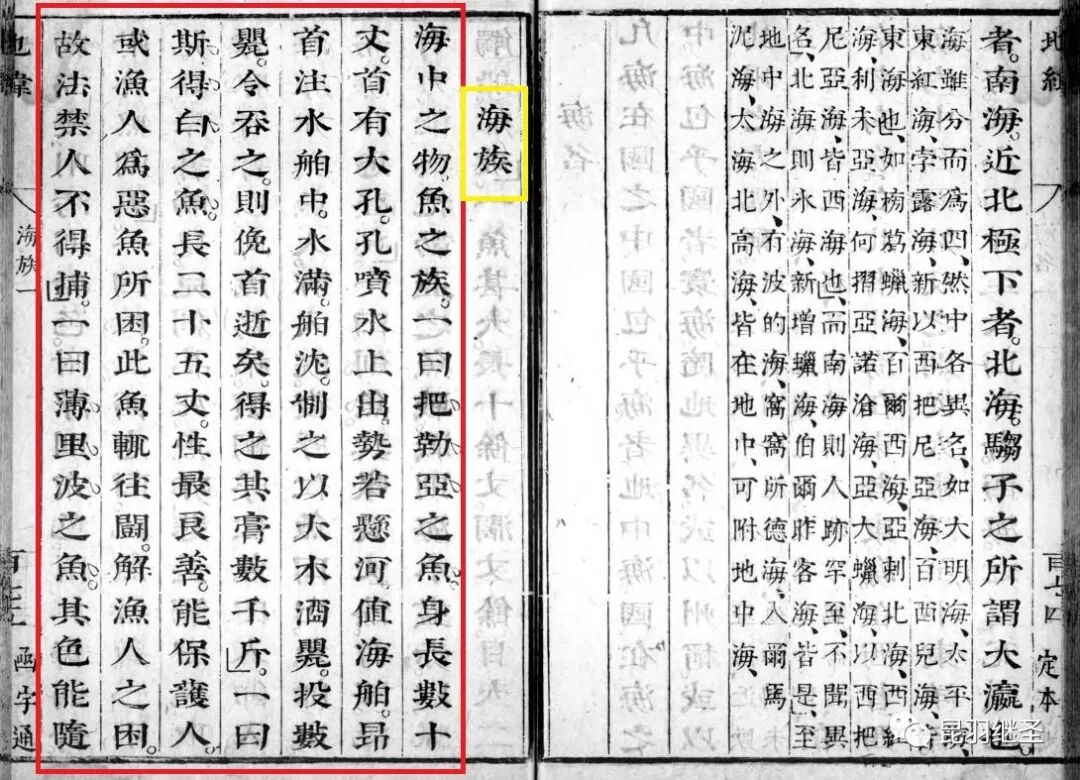 地緯
定本
者。南海。近北極下者。北海。騶子之所謂大瀛
海雖分而爲四、然中各異名、如大明海、太平
東紅海、孛露海、新以西把尼亞海、百西兒海、
東海也、如榜葛蠟海、百爾西海、亞剌北海、西紅
海、利未亞海、何摺亞諾滄海、亞大蠟海、以西把
尼亞海、皆西海也、而南海則人跡罕至、不聞異
名、北海則氷海、新增蠟海、伯爾昨客海、皆是、至
地中海之外、有波的海、窩窩所德海、入爾馬
泥海、太海、北高海、皆在地中、可附地中海、
海族
海中之物。魚之族。一曰把勒亞之魚。身長數十
丈。首有大孔。孔噴水上出。勢若懸河。值海舶。昂
首注水舶中。水滿。舶沈。制之以大木酒甖。投數
甖。令吞之。則俛首逝矣。得之其膏數千斤。一曰
斯得白之魚。長二十五丈。性最良善。能保護人。
或漁人爲惡魚所困。此魚輒往鬭。解漁人之困。
故法禁人不得捕。一曰薄里波之魚。其色能隨
地緯
海族一
函宇通
昆羽继圣